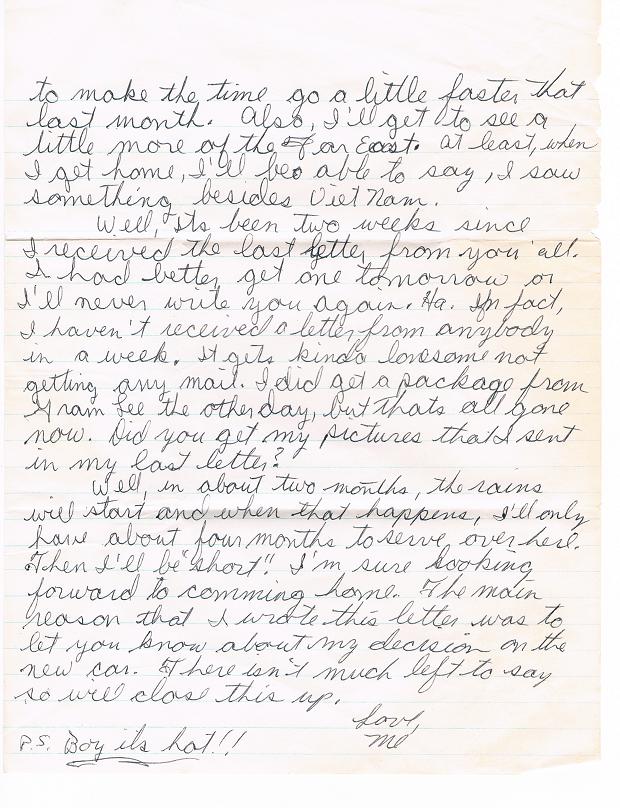 to make the time go a little faster that
last month. Also, I'll get to see a
little more of the Far East. At least, when
I get home, I'll be able to say, I saw
something besides Viet Nam.
Well, its been two weeks since
I received the last letter from you all.
I had better get one tomorrow or
I'll never write you again. Ha. In fact,
I haven't received a letter from anybody
in a week. It gets kinda lonesome not
getting any mail. I did get a package from
Gram Lee the other day, but thats all gone
now. Did you get my pictures that I sent
in my last letter?
Well, in about two months, the rains
will start and when that happens, I'll only
have about four months to serve over here.
Then I'll be "short"! I'm sure looking
forward to comming home. The main
reason that I wrote this letter was to
let you know about my decision on the
new car. There isn't much left to say
so will close this up.
Love,
Me
P.S. Boy its hot!!